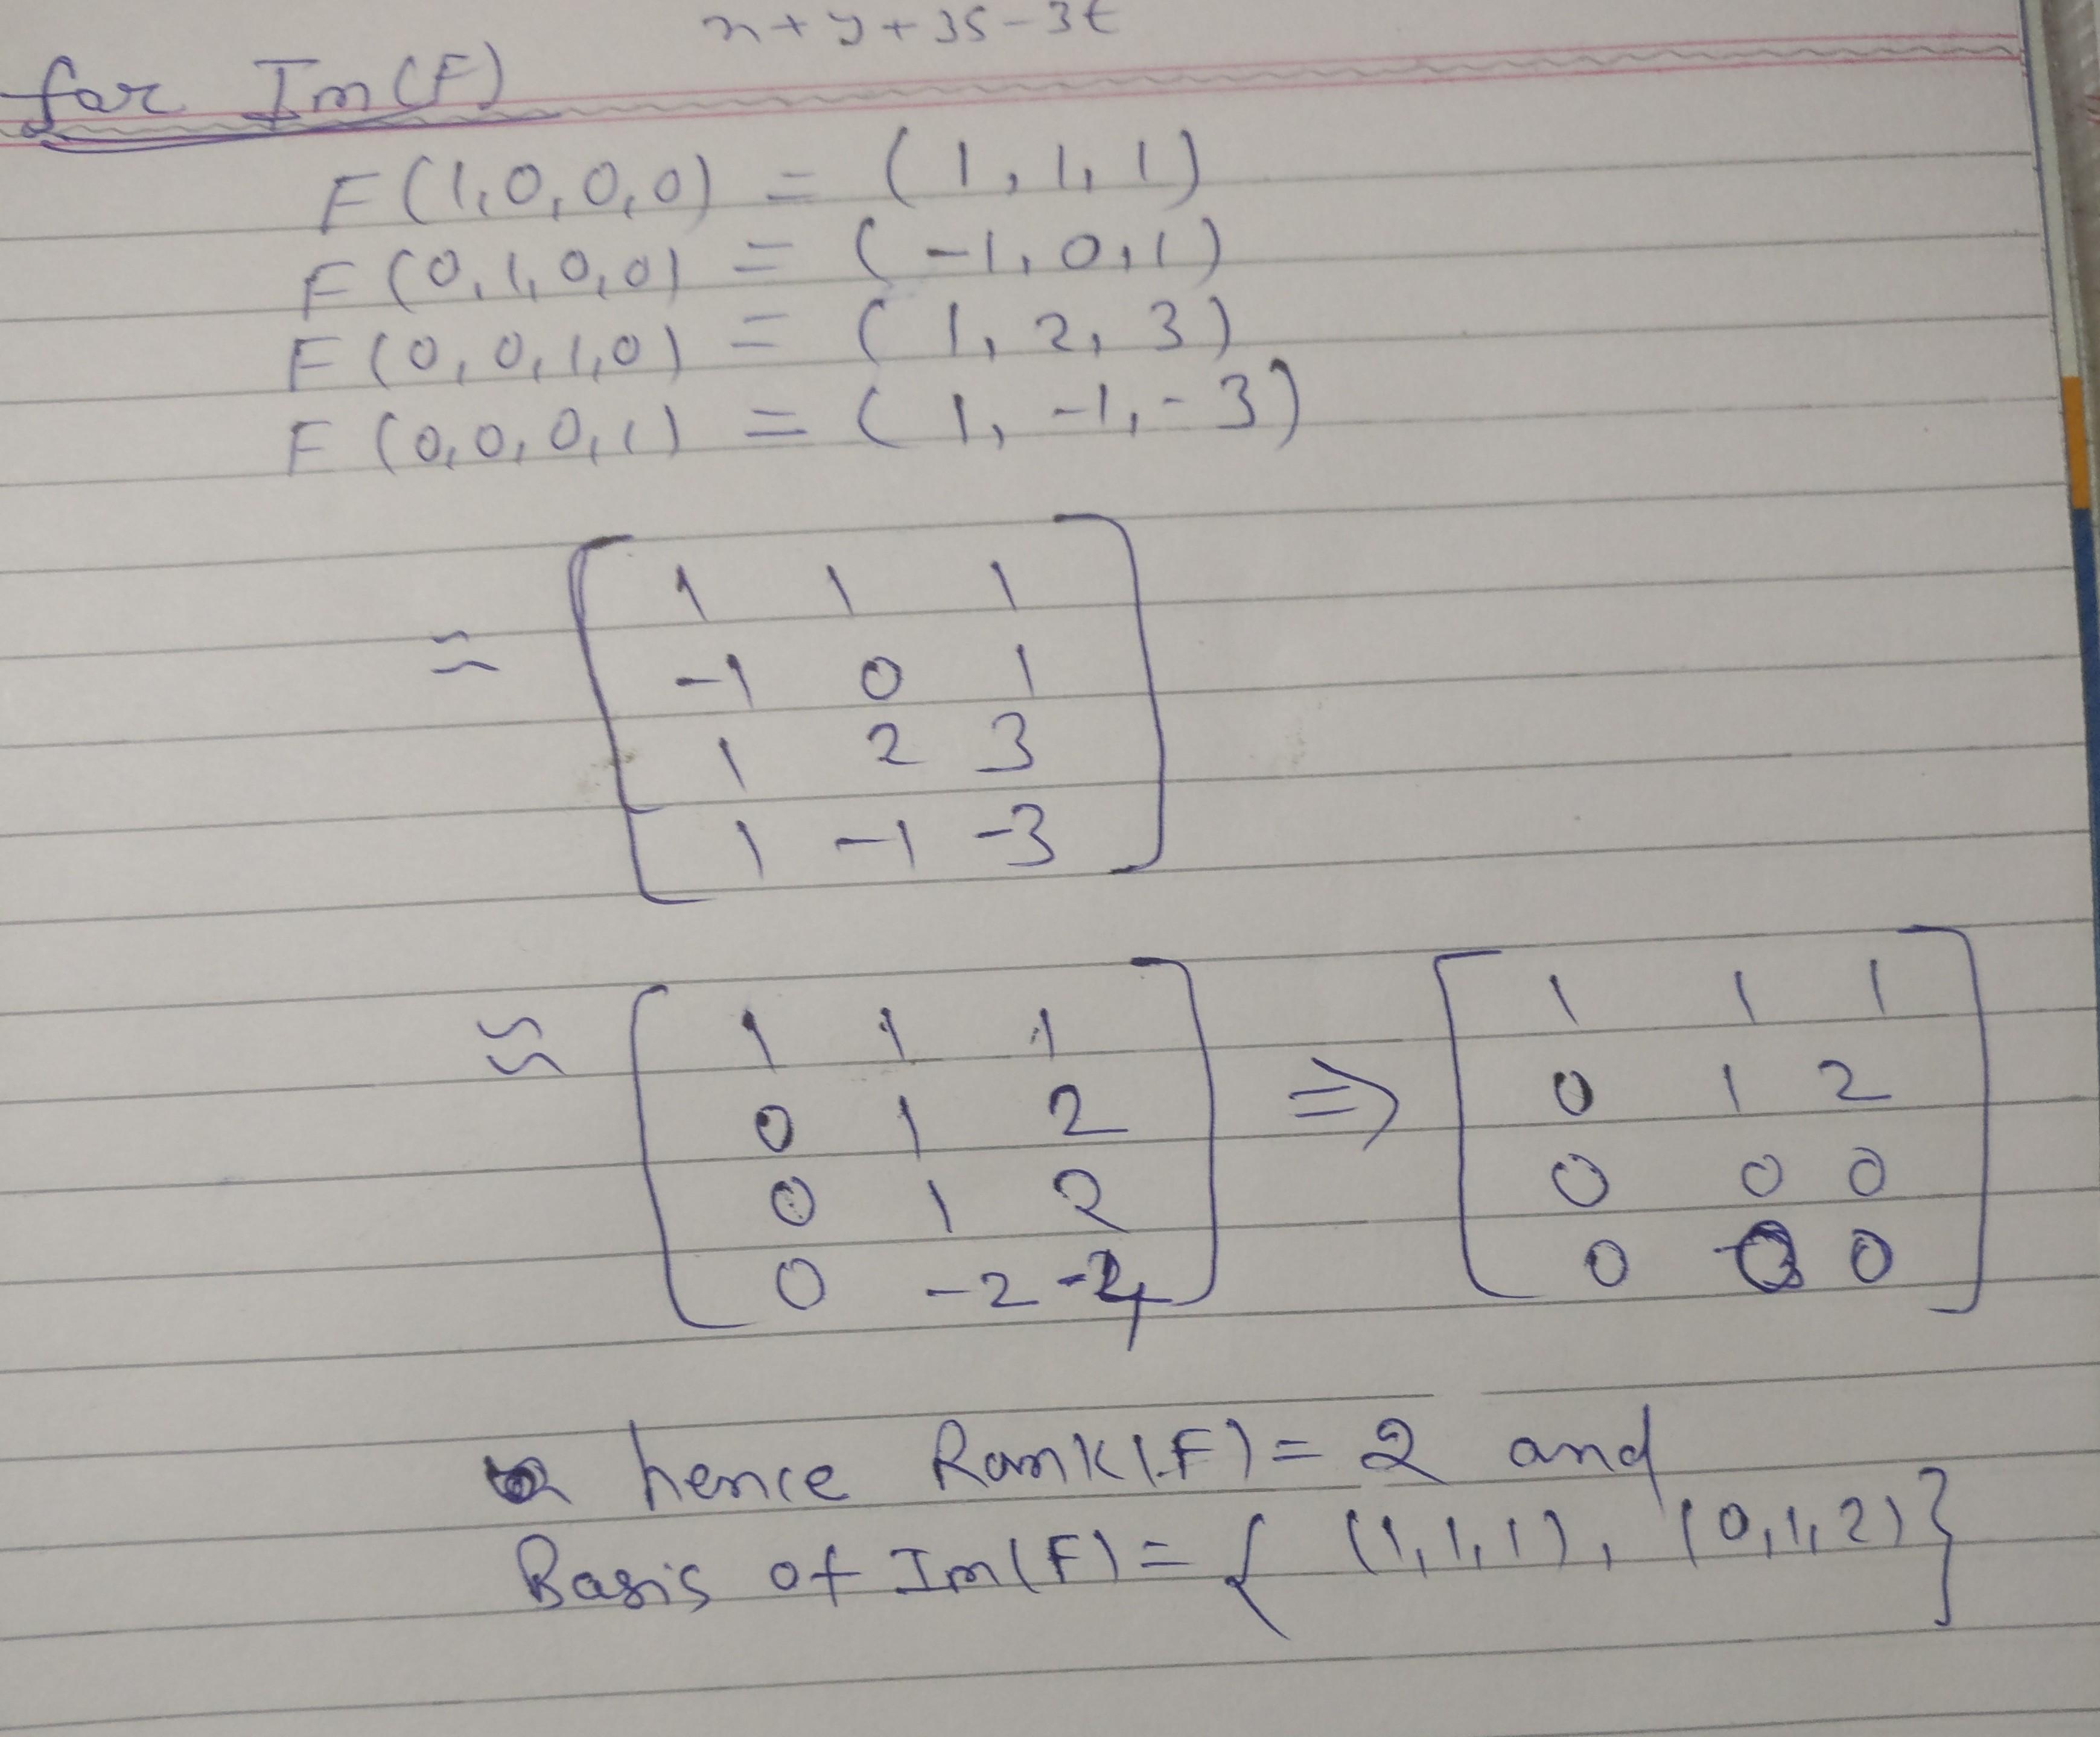 x + y + 3s - 3t
for Im(F)
F(1,0,0,0) = (1, 1, 1)
F(0,1,0,0) = (-1, 0, 1)
F(0,0,1,0) = (1, 2, 3)
F(0,0,0,1) = (1, -1, -3)
1 1 1
≈ -1 0 1
1 2 3
1 -1 -3
1 1 1 1 1 1
≈ 0 1 2 ⇒ 0 1 2
0 1 2 0 0 0
0 -2 -4 0 0 0
hence Rank(F) = 2 and
Basis of Im(F) = { (1,1,1), (0,1,2) }